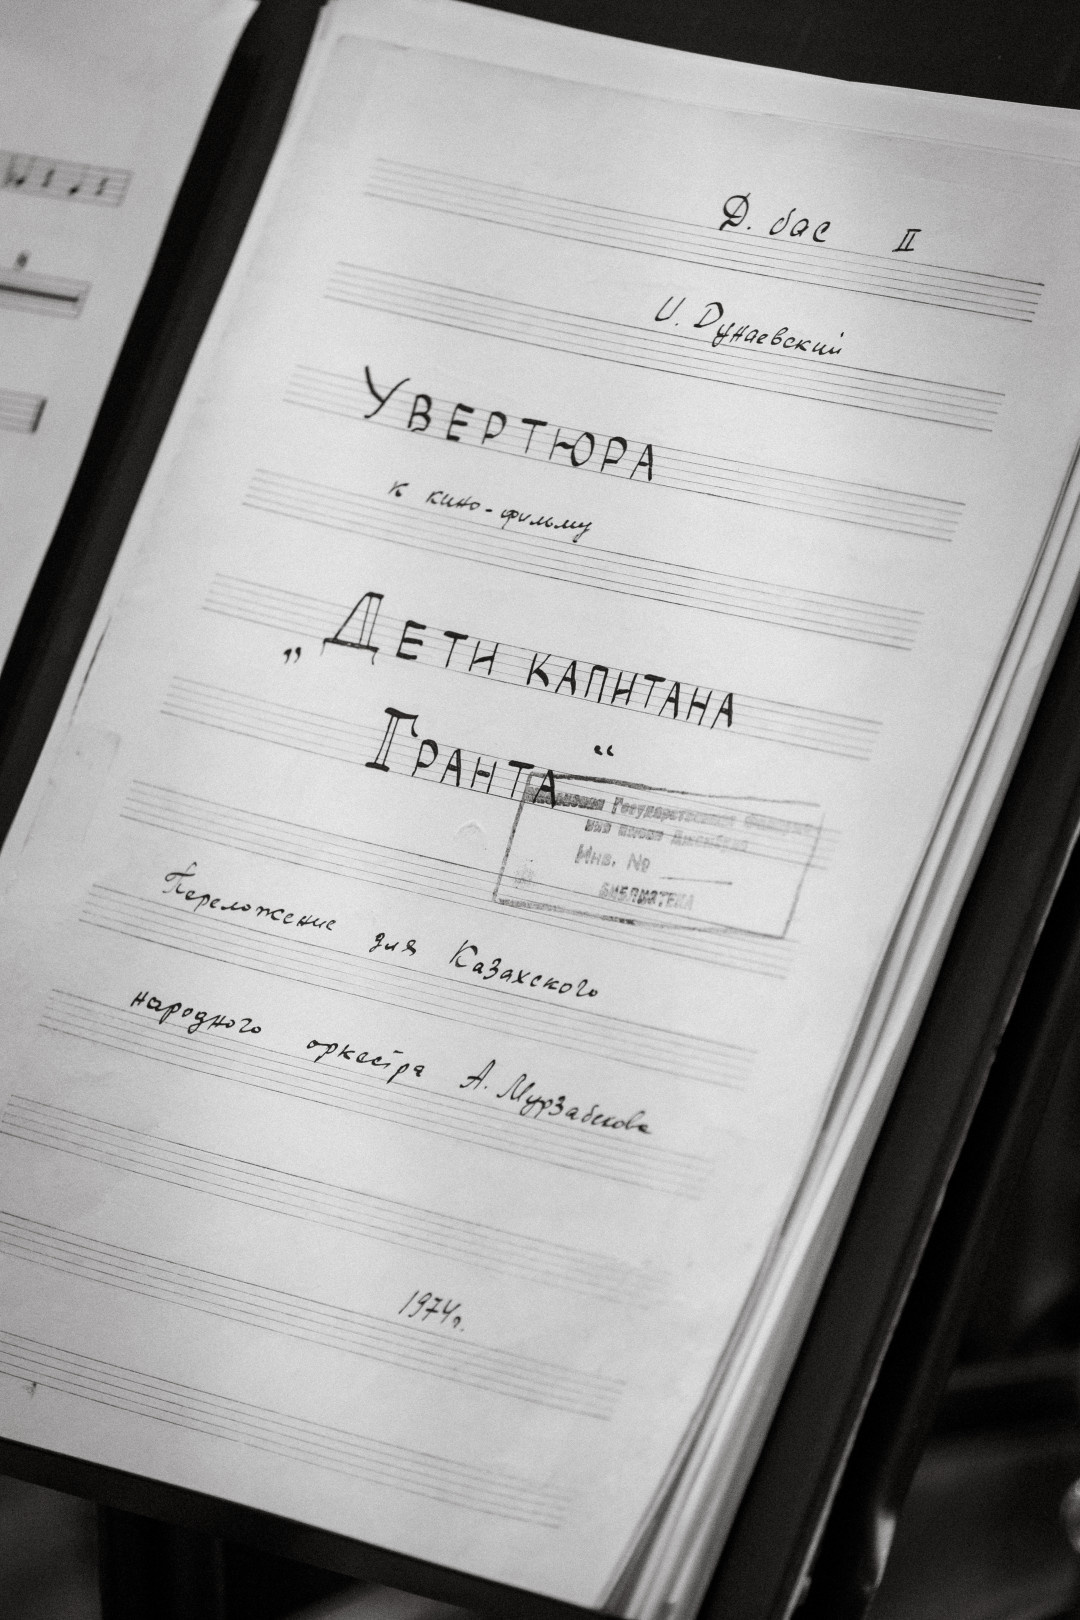 Д. бас II
И. Дунаевский
УВЕРТЮРА
к кино-фильму
„ДЕТИ КАПИТАНА
ГРАНТА“
Государственная
имени
Инв. №
БИБЛИОТЕКА
Переложение для Казахского
народного оркестра А. Мурзабекова
1974г.